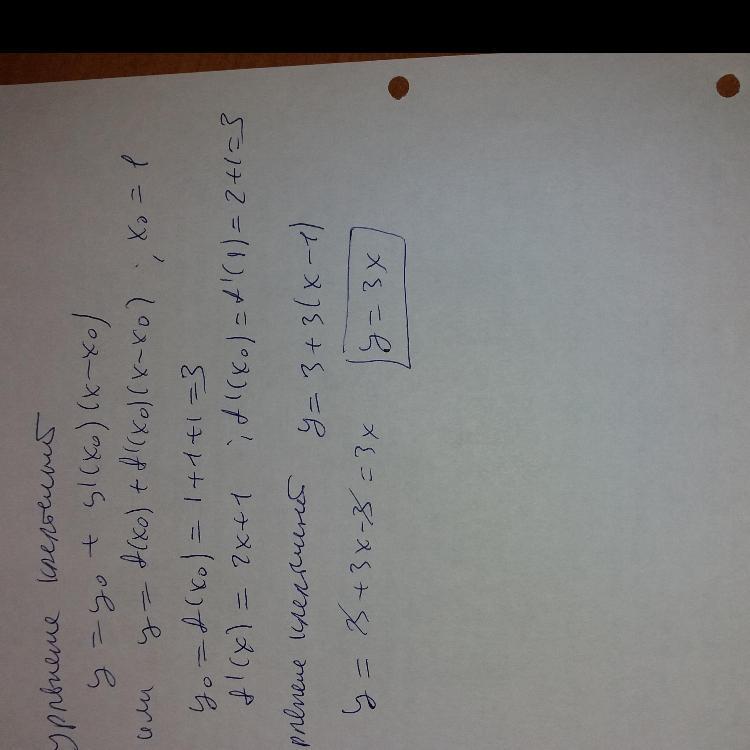 уравнение касательной
y = y₀ + y'(x₀)(x-x₀)
или y = f(x₀) + f'(x₀)(x-x₀) ; x₀ = 1
y₀ = f(x₀) = 1+1+1 = 3
f'(x) = 2x+1 ; f'(x₀) = f'(1) = 2+1 = 3
касательной y = 3 + 3(x-1)
y = 3 + 3x - 3 = 3x y = 3x